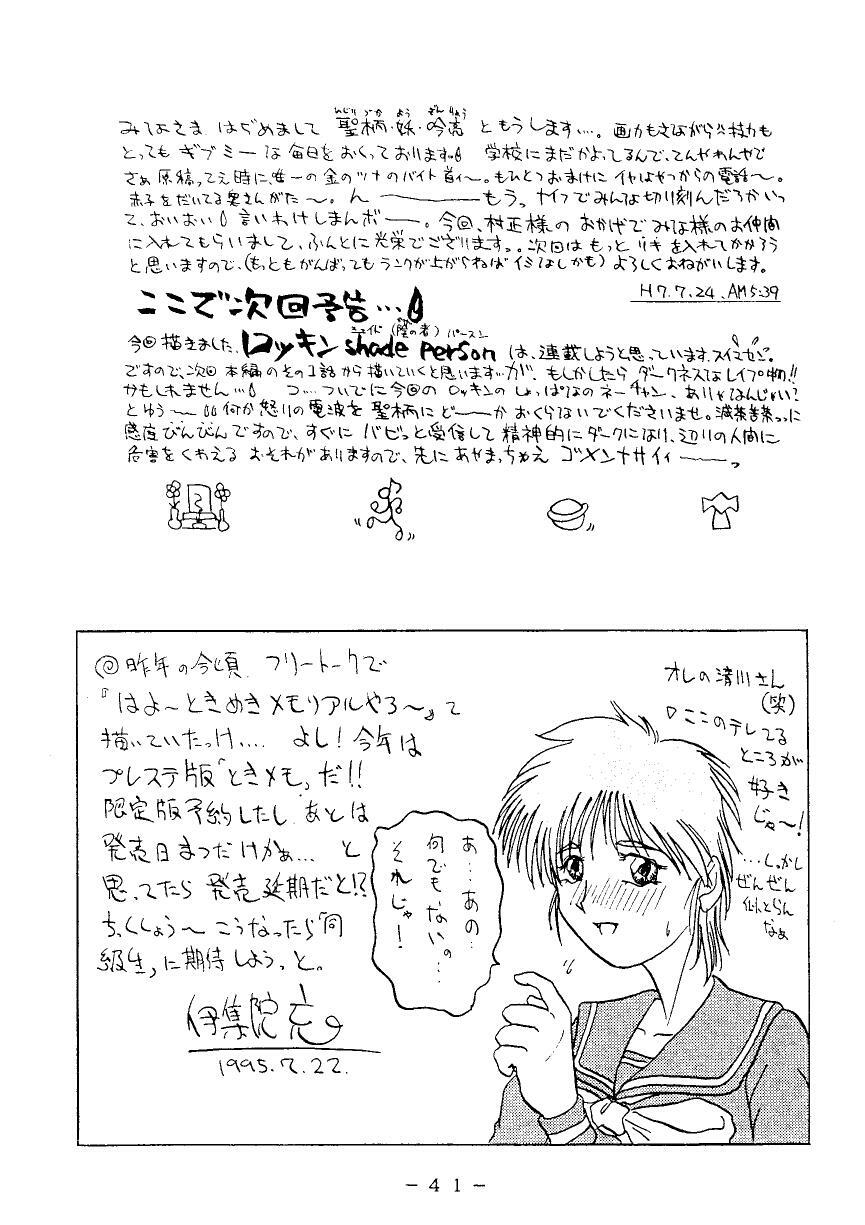 みなさま はぢめまして 聖柄・妖・吟亮 ともうします…。画力もさながら、技力も
とっても ギブミーな毎日をおくっております 学校にまだかよってるんで、てんやわんやで
さぁ原稿ってぇ時に、唯一の金のツナのバイト首ィ〜。もひとつおまけに イヤなやつからの電話〜。
赤子をだいてる奥さんがた〜。ん〜 もう。ナイフでみんな切り刻んだろかいっ
て、おいおい 言いわけしまんボーー。今回、村正様の おかげで みな様のお仲間
に入れてもらいまして、ふんとに光栄でございます。。次回は もっと リキ を入れてかかろう
と思いますので、(もっともがんばっても ランクが上がらねば イミなしかも) よろしくおねがいします。
H7.7.24. AM5:39
ここで次回予告…
今回描きました、ロッキン shade person は、連載しようと思っています。スイマセン。
シェイド (陰の者) パースン
ですので、次回 本編の その1話 から 描いていくと思います…が、もしかしたら ダークネスなレイプ物!!
かもしれません… つ…ついでに今回の ロッキンの しょっぱなの ネーチャン、ありゃなんじゃい?
とゆう〜 何か怒りの電波を 聖柄に ど〜か おくらないでくださいませ。滅茶苦茶っに
感度びんびんですので、すぐに バビっと受信して 精神的にダークになり、辺りの人間に
危害をくわえる おそれがありますので、先に あやまっちゃえ ゴメンナサイィーー。
◎昨年の今頃 フリートークで
『はよ〜ときめきメモリアルやろ〜』って
描いていたっけ…. よし！今年は
プレステ版「ときメモ」だ!!
限定版予約したし あとは
発売日まつだけかぁ… と
思ってたら 発売延期だと!?
ちっくしょう〜 こうなったら「同
級生」に期待しよう。っと。
伊集院 充
1995.7.22.
あ…あの…
何でもないの…
それじゃ！
オレの清川さん
(笑)
ここのテレてる
ところが
好き
じゃ〜！
…しっかし
ぜんぜん
似とらん
なぁ
－41－